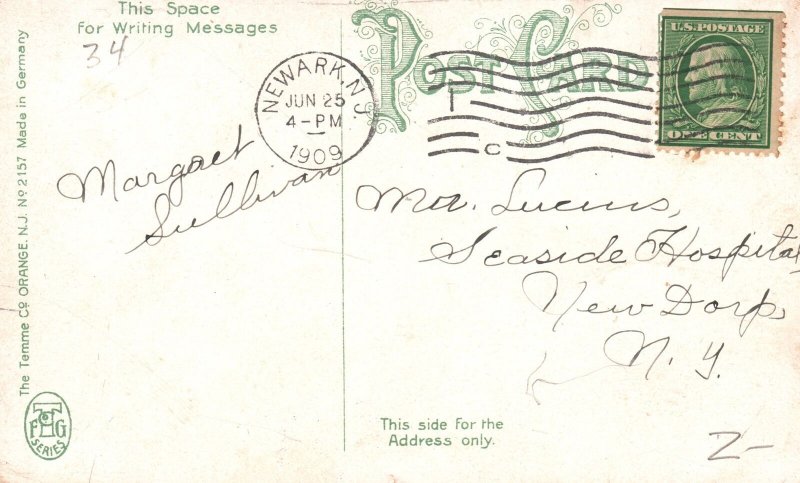 This Space
For Writing Messages
34
POST CARD
NEWARK, N.J.
JUN 25
4-PM
1909
C
U.S. POSTAGE
ONE CENT
Margaret
Sullivan
Seaside Hospital
New Dorp,
N. Y.
The Temme Co ORANGE. N.J. No 2157 Made in Germany
T
F G
SERIES
This side For the
Address only.
2-